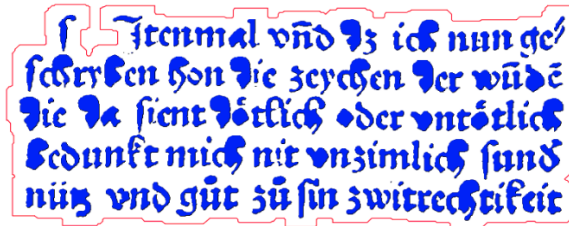 s Jtenmal vñd dz ich nun ge⸗
schryben hon die zeychen der wũdẽ
die da sient doͤtlich oder vntoͤtlich
Bedunkt mich nit vnzimlich sund
nütz vnd guͦt zuͦ sin zwitrechtikeit